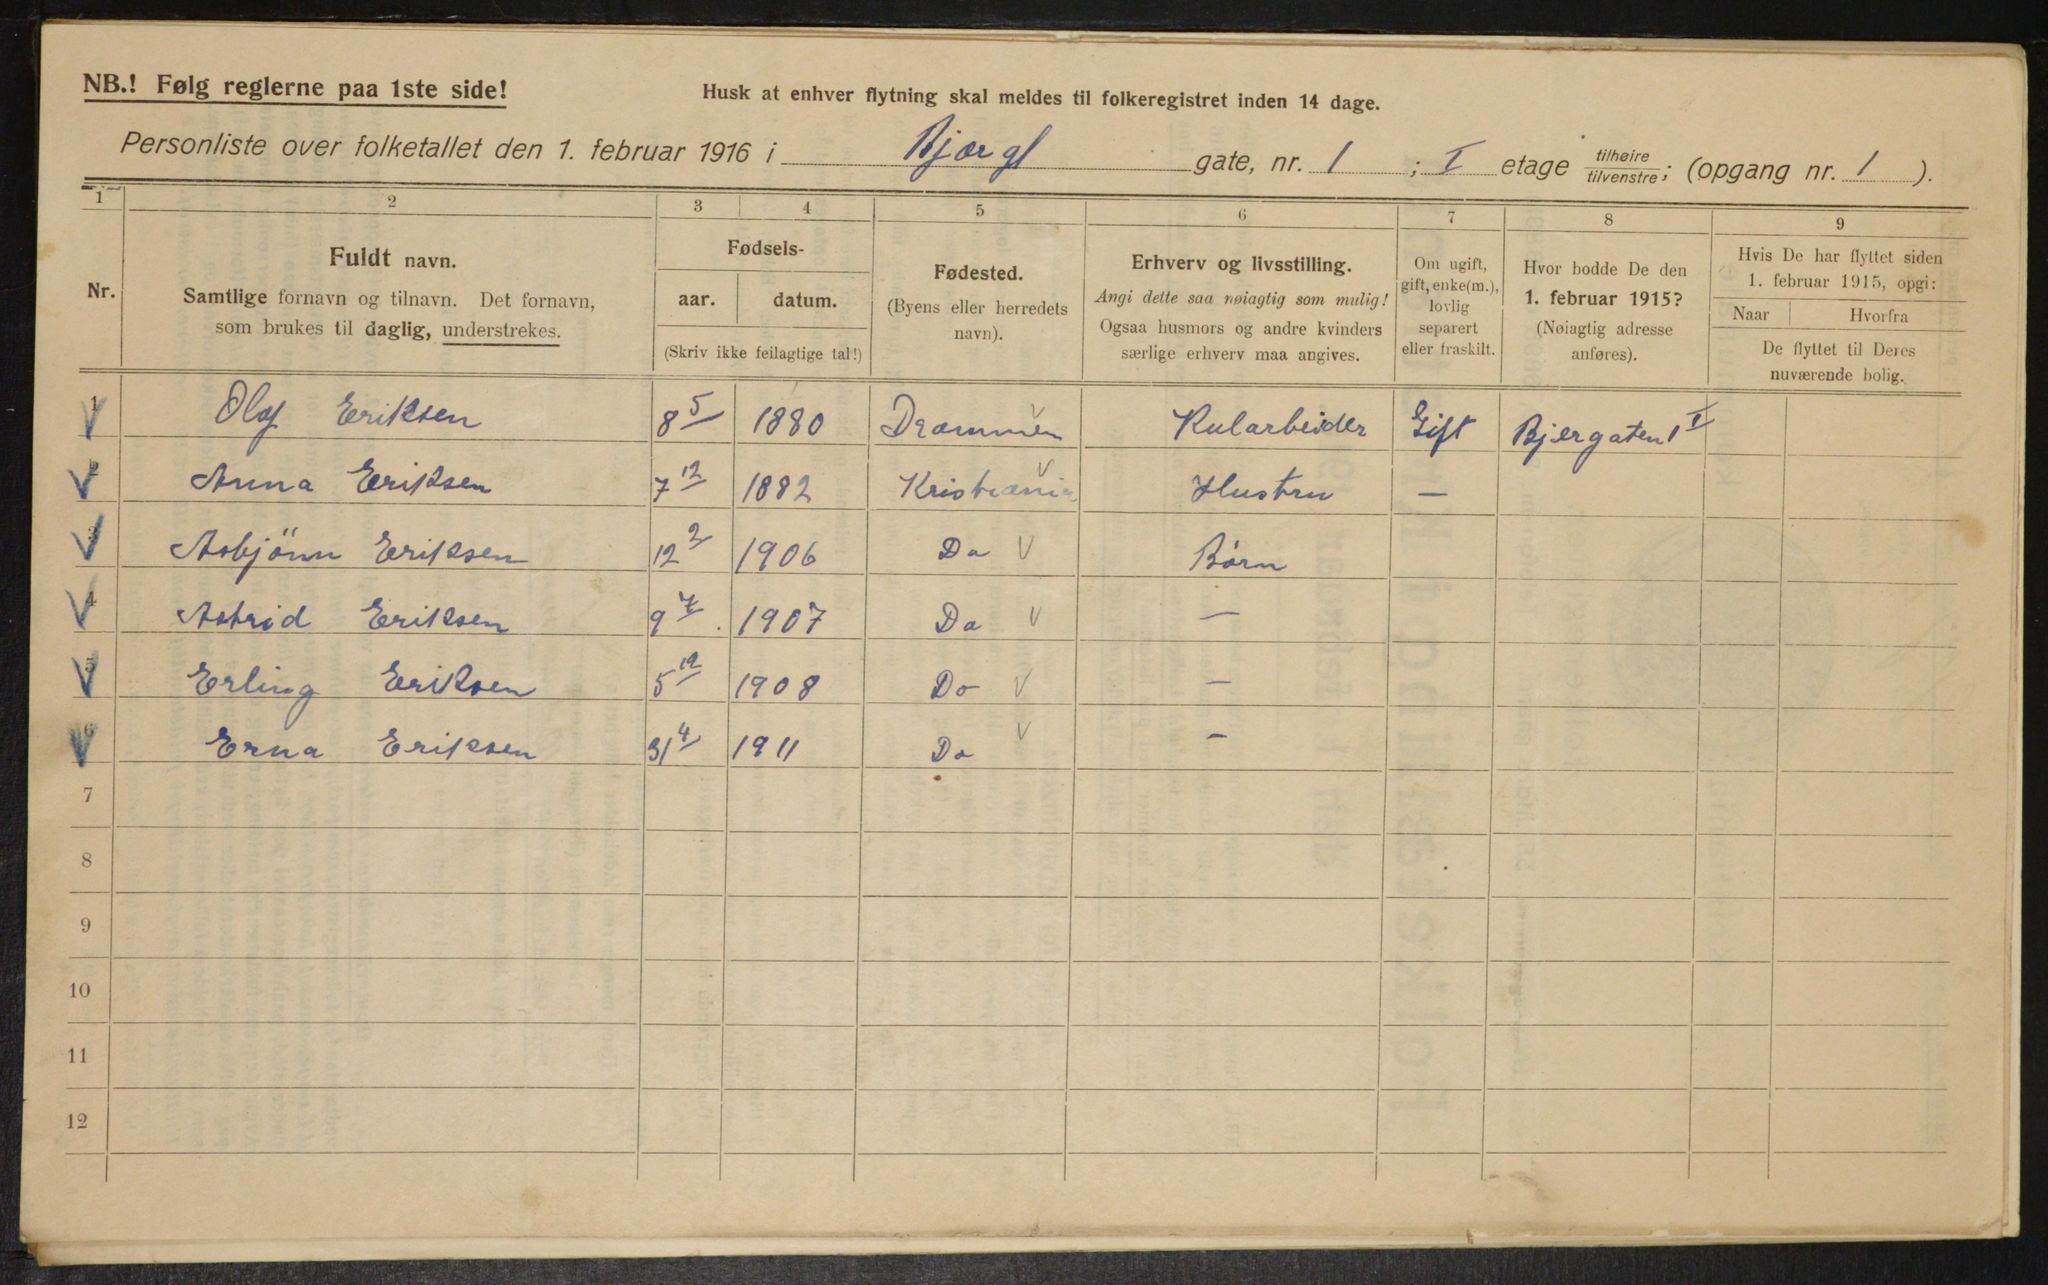 NB.! Følg reglerne paa 1ste side!
Husk at enhver flytning skal meldes til folkeregistret inden 14 dage.
Personliste over folketallet den 1. februar 1916 i Bjergt gate, nr. 1 ; I etage tilhøire/tilvenstre; (opgang nr. 1 ).
1 2 3 4 5 6 7 8 9
Nr.
Fuldt navn.
Samtlige fornavn og tilnavn. Det fornavn,
som brukes til daglig, understrekes.
Fødsels-
aar. datum.
(Skriv ikke feilagtige tal!)
Fødested.
(Byens eller herredets
navn).
Erhverv og livsstilling.
Angi dette saa nøiagtig som mulig!
Ogsaa husmors og andre kvinders
særlige erhverv maa angives.
Om ugift,
gift, enke(m.),
lovlig
separert
eller fraskilt.
Hvor bodde De den
1. februar 1915?
(Nøiagtig adresse
anføres).
Hvis De har flyttet siden
1. februar 1915, opgi:
Naar Hvorfra
De flyttet til Deres
nuværende bolig.
1 Olaf Eriksen 8 5 1880 Drammen Kularbeider Gift Bjergaten 1 I
2 Anna Eriksen 7 12 1882 Kristiania Hustru —
3 Asbjönn Eriksen 12 2 1906 Do Börn
4 Astrid Eriksen 9 7 1907 Do —
5 Erling Eriksen 5 12 1908 Do —
6 Erna Eriksen 31 4 1911 Do —
7
8
9
10
11
12